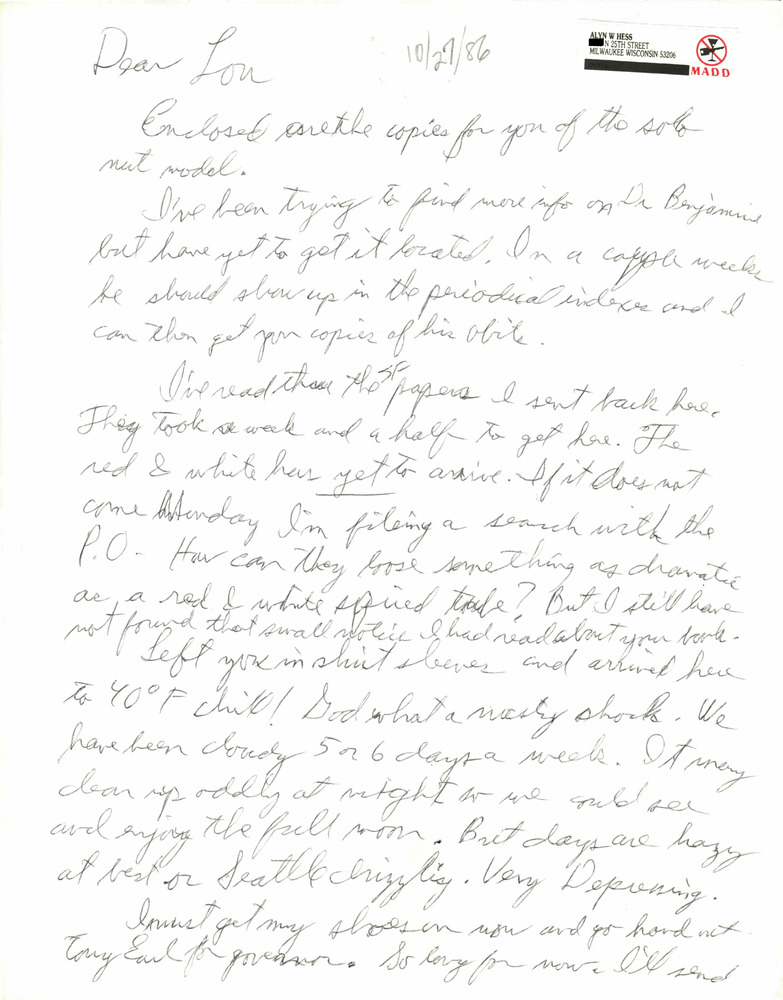 ALYN W HESS
N 25TH STREET
MILWAUKEE WISCONSIN 53206
MADD
10/27/86
Dear Lou
Enclosed are the copies for you of the solo
nut model.
I've been trying to find more info on Dr Benjamine
but have yet to get it located. In a couple weeks
he should show up in the periodical indexes and I
can then get you copies of his obits.
I've read thru the SF papers I sent back here.
They took a week and a half to get here. The
red & white has yet to arrive. If it does not
come Monday I'm fileing a search with the
P.O. - How can they loose something as dramatic
as a red & white striped tube? But I still have
not found that small notice I had read about your book.
Left you in shirt sleeves and arrived here
to 40° F chill! God what a nasty shock. We
have been cloudy 5 or 6 days a week. It may
clear up oddly at night so we could see
and enjoy the full moon. But days are hazy
at best or Seattle drizzly. Very Depressing.
I must get my shoes on now and go hand out
Tony Earl for governor. So long for now. I'll send